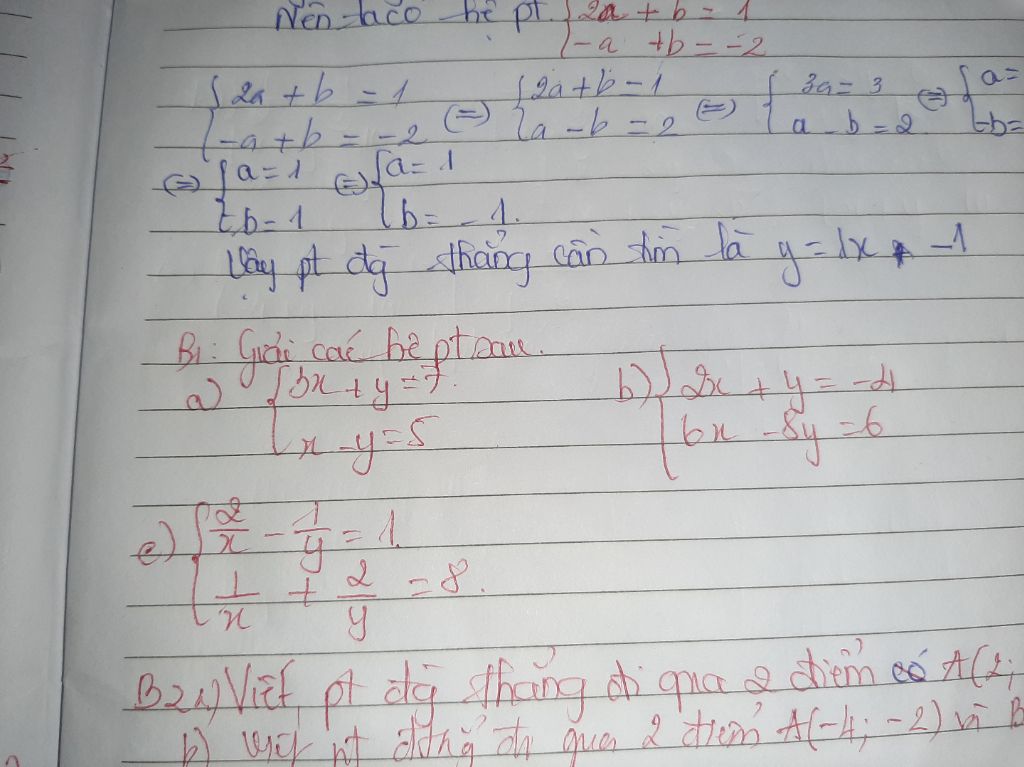 Nên ta có hệ pt. { 2a + b = 1
{ -a + b = -2
{ 2a + b = 1 (=) { 2a + b = 1 (=) { 3a = 3 (=) { a =
{ -a + b = -2 { a - b = 2 { a - b = 2 { -b =
(=) { a = 1 (=) { a = 1
{ -b = 1 { b = -1.
Vậy pt đg thẳng cần tìm là y = 1x -1
B1: Giải các hệ pt sau.
a) { 3x + y = 7. b) { 2x + y = -4
{ x - y = 5 { 6x - 8y = 6
c) { 2/x - 1/y = 1.
{ 1/x + 2/y = 8.
B2 a) Viết pt đg thẳng đi qua 2 điểm có A(2;
b) viết pt đthg đi qua 2 điểm A(-4; -2) và B